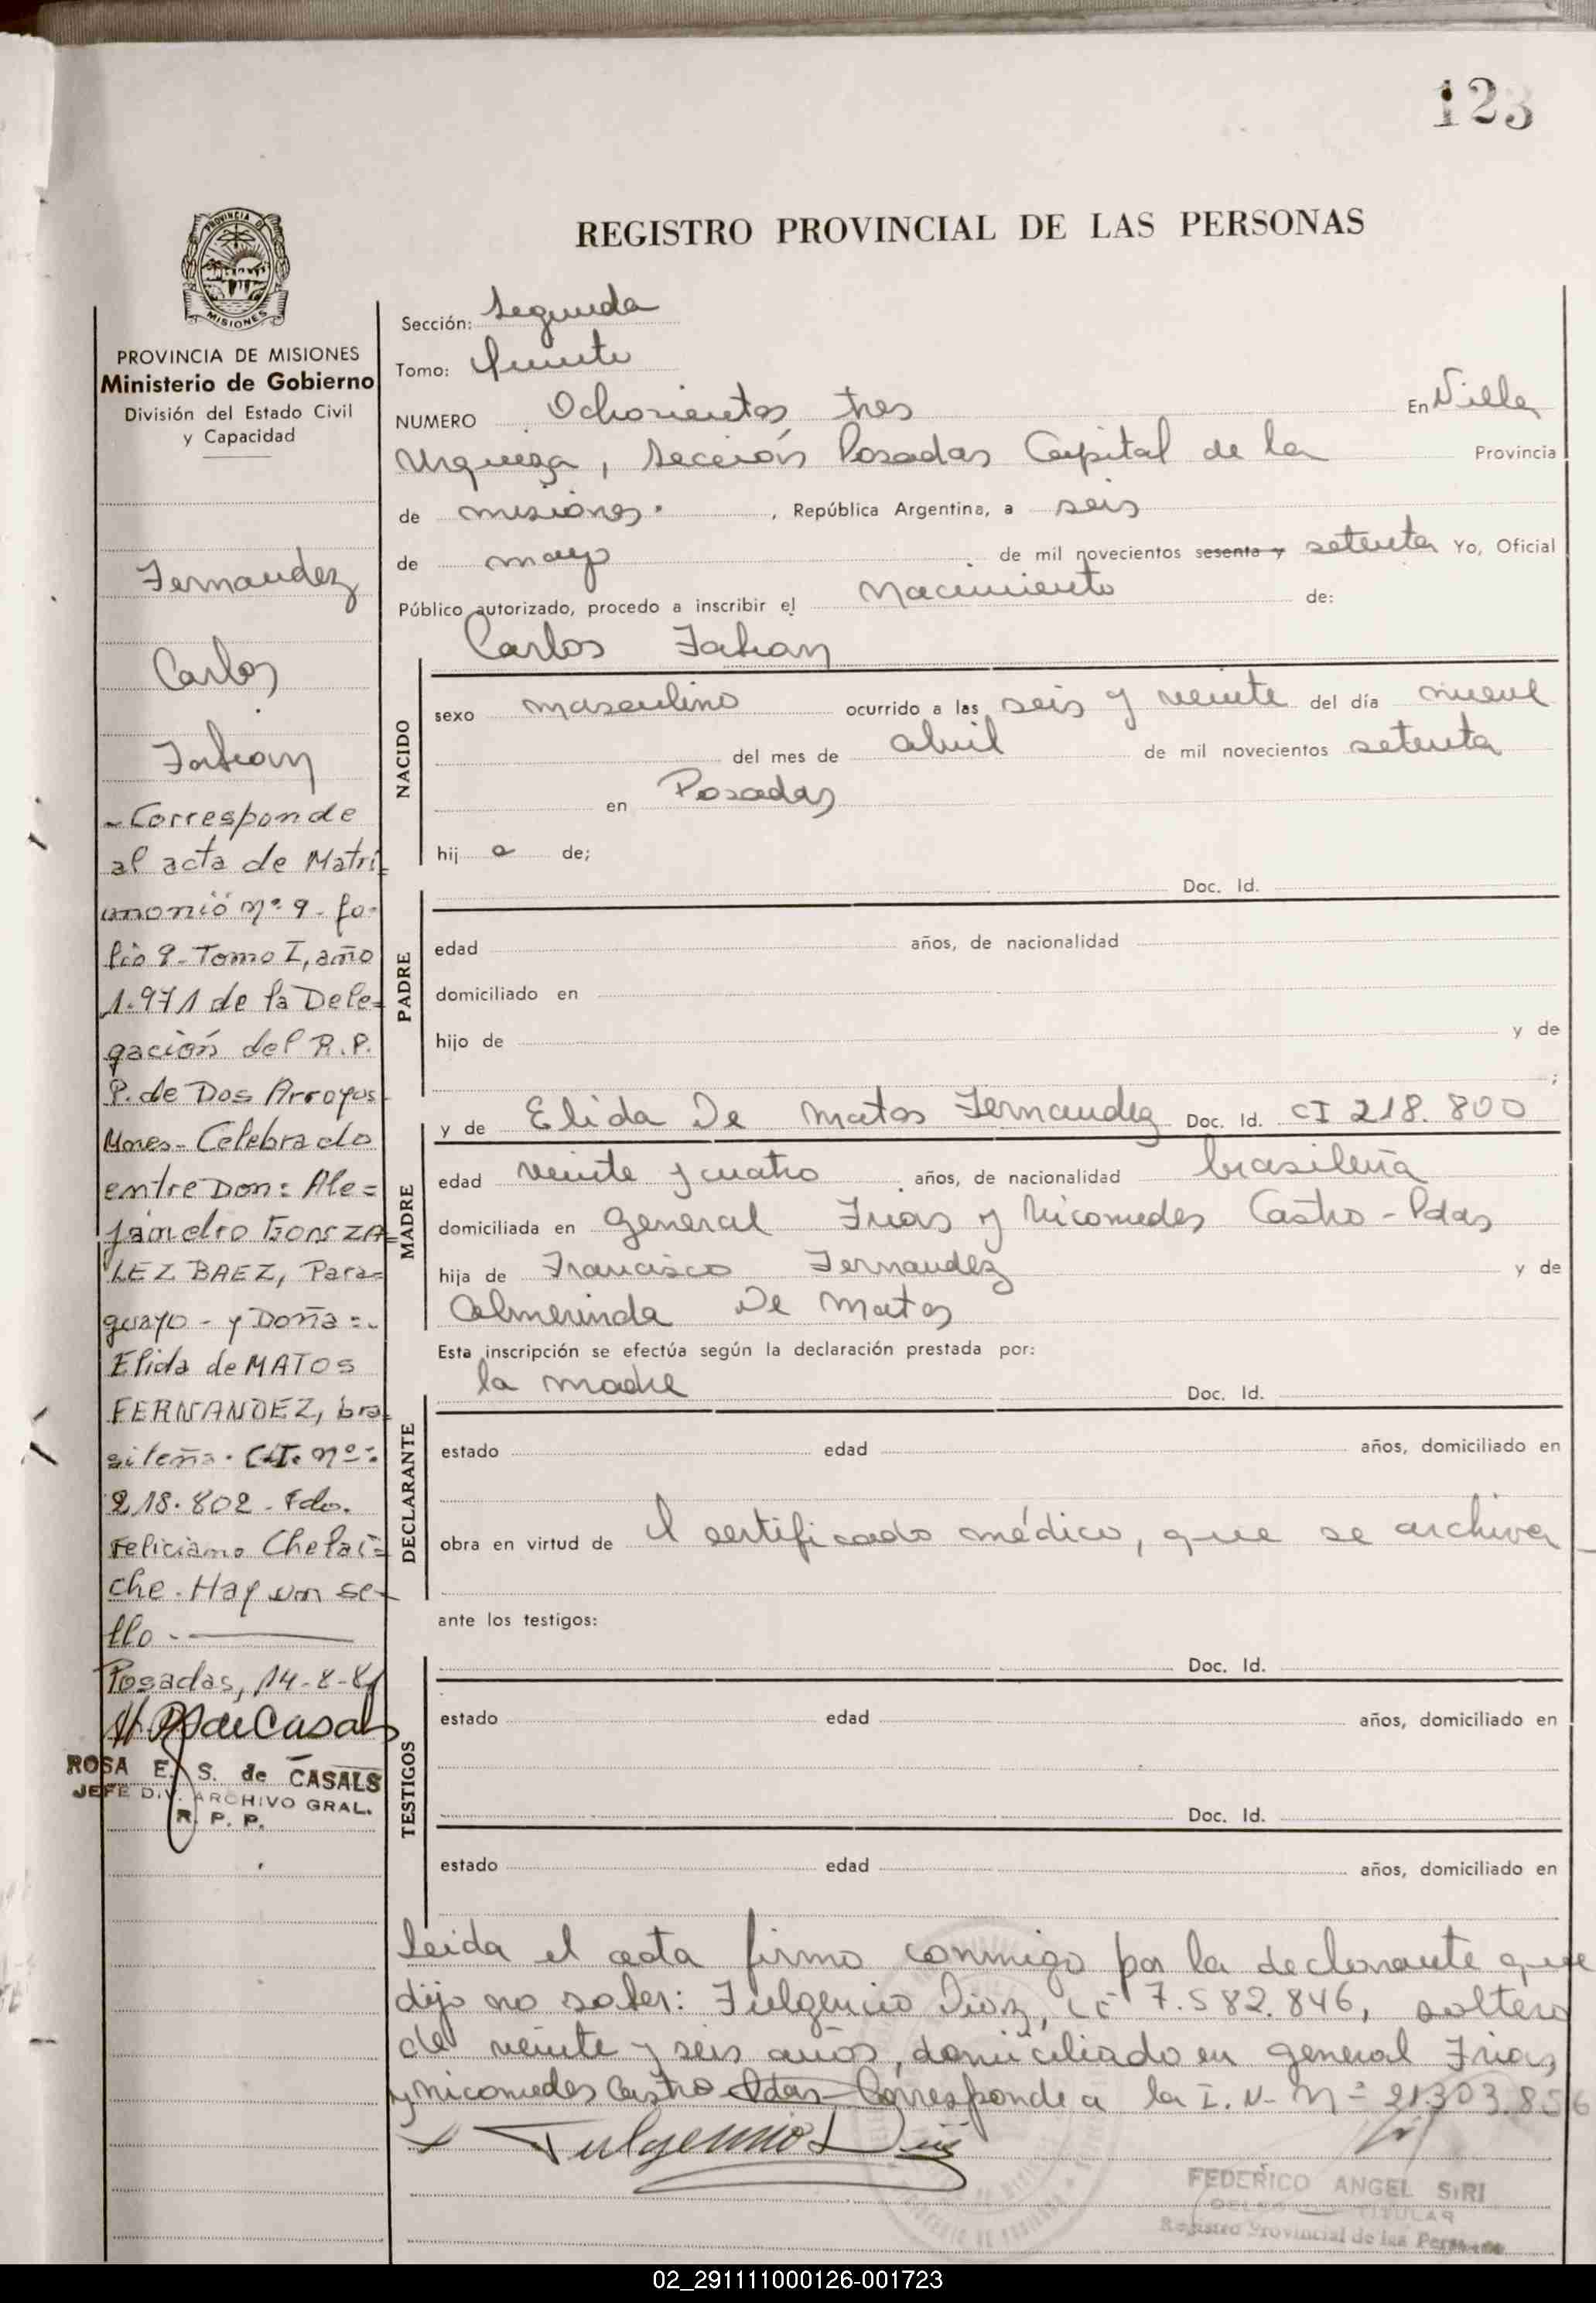 123
PROVINCIA DE
MISIONES
PROVINCIA DE MISIONES
Ministerio de Gobierno
División del Estado Civil
y Capacidad
Fernandez
Carlos
Fabian
- Corresponde
al acta de Matri=
monio nº 9 - fo-
lio 9 - Tomo I, año
1.971 de la Dele=
gación del R.P.
P. de Dos Arroyos
Mnes - Celebrado
entre Don: Ale=
jandro GONZA=
LEZ BAEZ, Para=
guayo - y Doña =.
Elida de MATOS
FERNANDEZ, bra
sileña. C.I. nº:
218.802 - Fdo.
Feliciano Chelai=
che. Hay un se-
llo -
Posadas, 14-8-81
ROSA E. S. de CASALS
JEFE DIV. ARCHIVO GRAL.
R. P. P.
REGISTRO PROVINCIAL DE LAS PERSONAS
Sección: Segunda
Tomo: Quinto
NUMERO Ochocientos tres En Villa
Urquiza, sección Posadas Capital de la Provincia
de misiones. , República Argentina, a seis
de mayo de mil novecientos sesenta y setenta Yo, Oficial
Público autorizado, procedo a inscribir el Nacimiento de:
Carlos Fabian
NACIDO
sexo masculino ocurrido a las seis y veinte del día nueve
del mes de abril de mil novecientos setenta
en Posadas
hij o de;
Doc. Id.
PADRE
edad años, de nacionalidad
domiciliado en
hijo de y de
;
y de Elida De Matos Fernandez Doc. Id. CI 218.800
MADRE
edad veinte y cuatro años, de nacionalidad brasileña
domiciliada en General Frias y Nicomedes Castro - Pdas
hija de Francisco Fernandez y de
Almerinda De Matos
Esta inscripción se efectúa según la declaración prestada por:
la madre Doc. Id.
DECLARANTE
estado edad años, domiciliado en
obra en virtud de el certificado médico, que se archiva
ante los testigos:
Doc. Id.
TESTIGOS
estado edad años, domiciliado en
Doc. Id.
estado edad años, domiciliado en
leida el acta firma conmigo por la declarante que
dijo no saber: Fulgencio Diaz, LE 7.582.846, soltero
de veinte y seis años, domiciliado en general Frias
y nicomedes Castro Pdas - Corresponde a la I. N- Nº 21.303.856
Fulgencio Diaz
FEDERICO ANGEL SIRI
DELEGADO TITULAR
Registro Provincial de las Personas
02_291111000126-001723